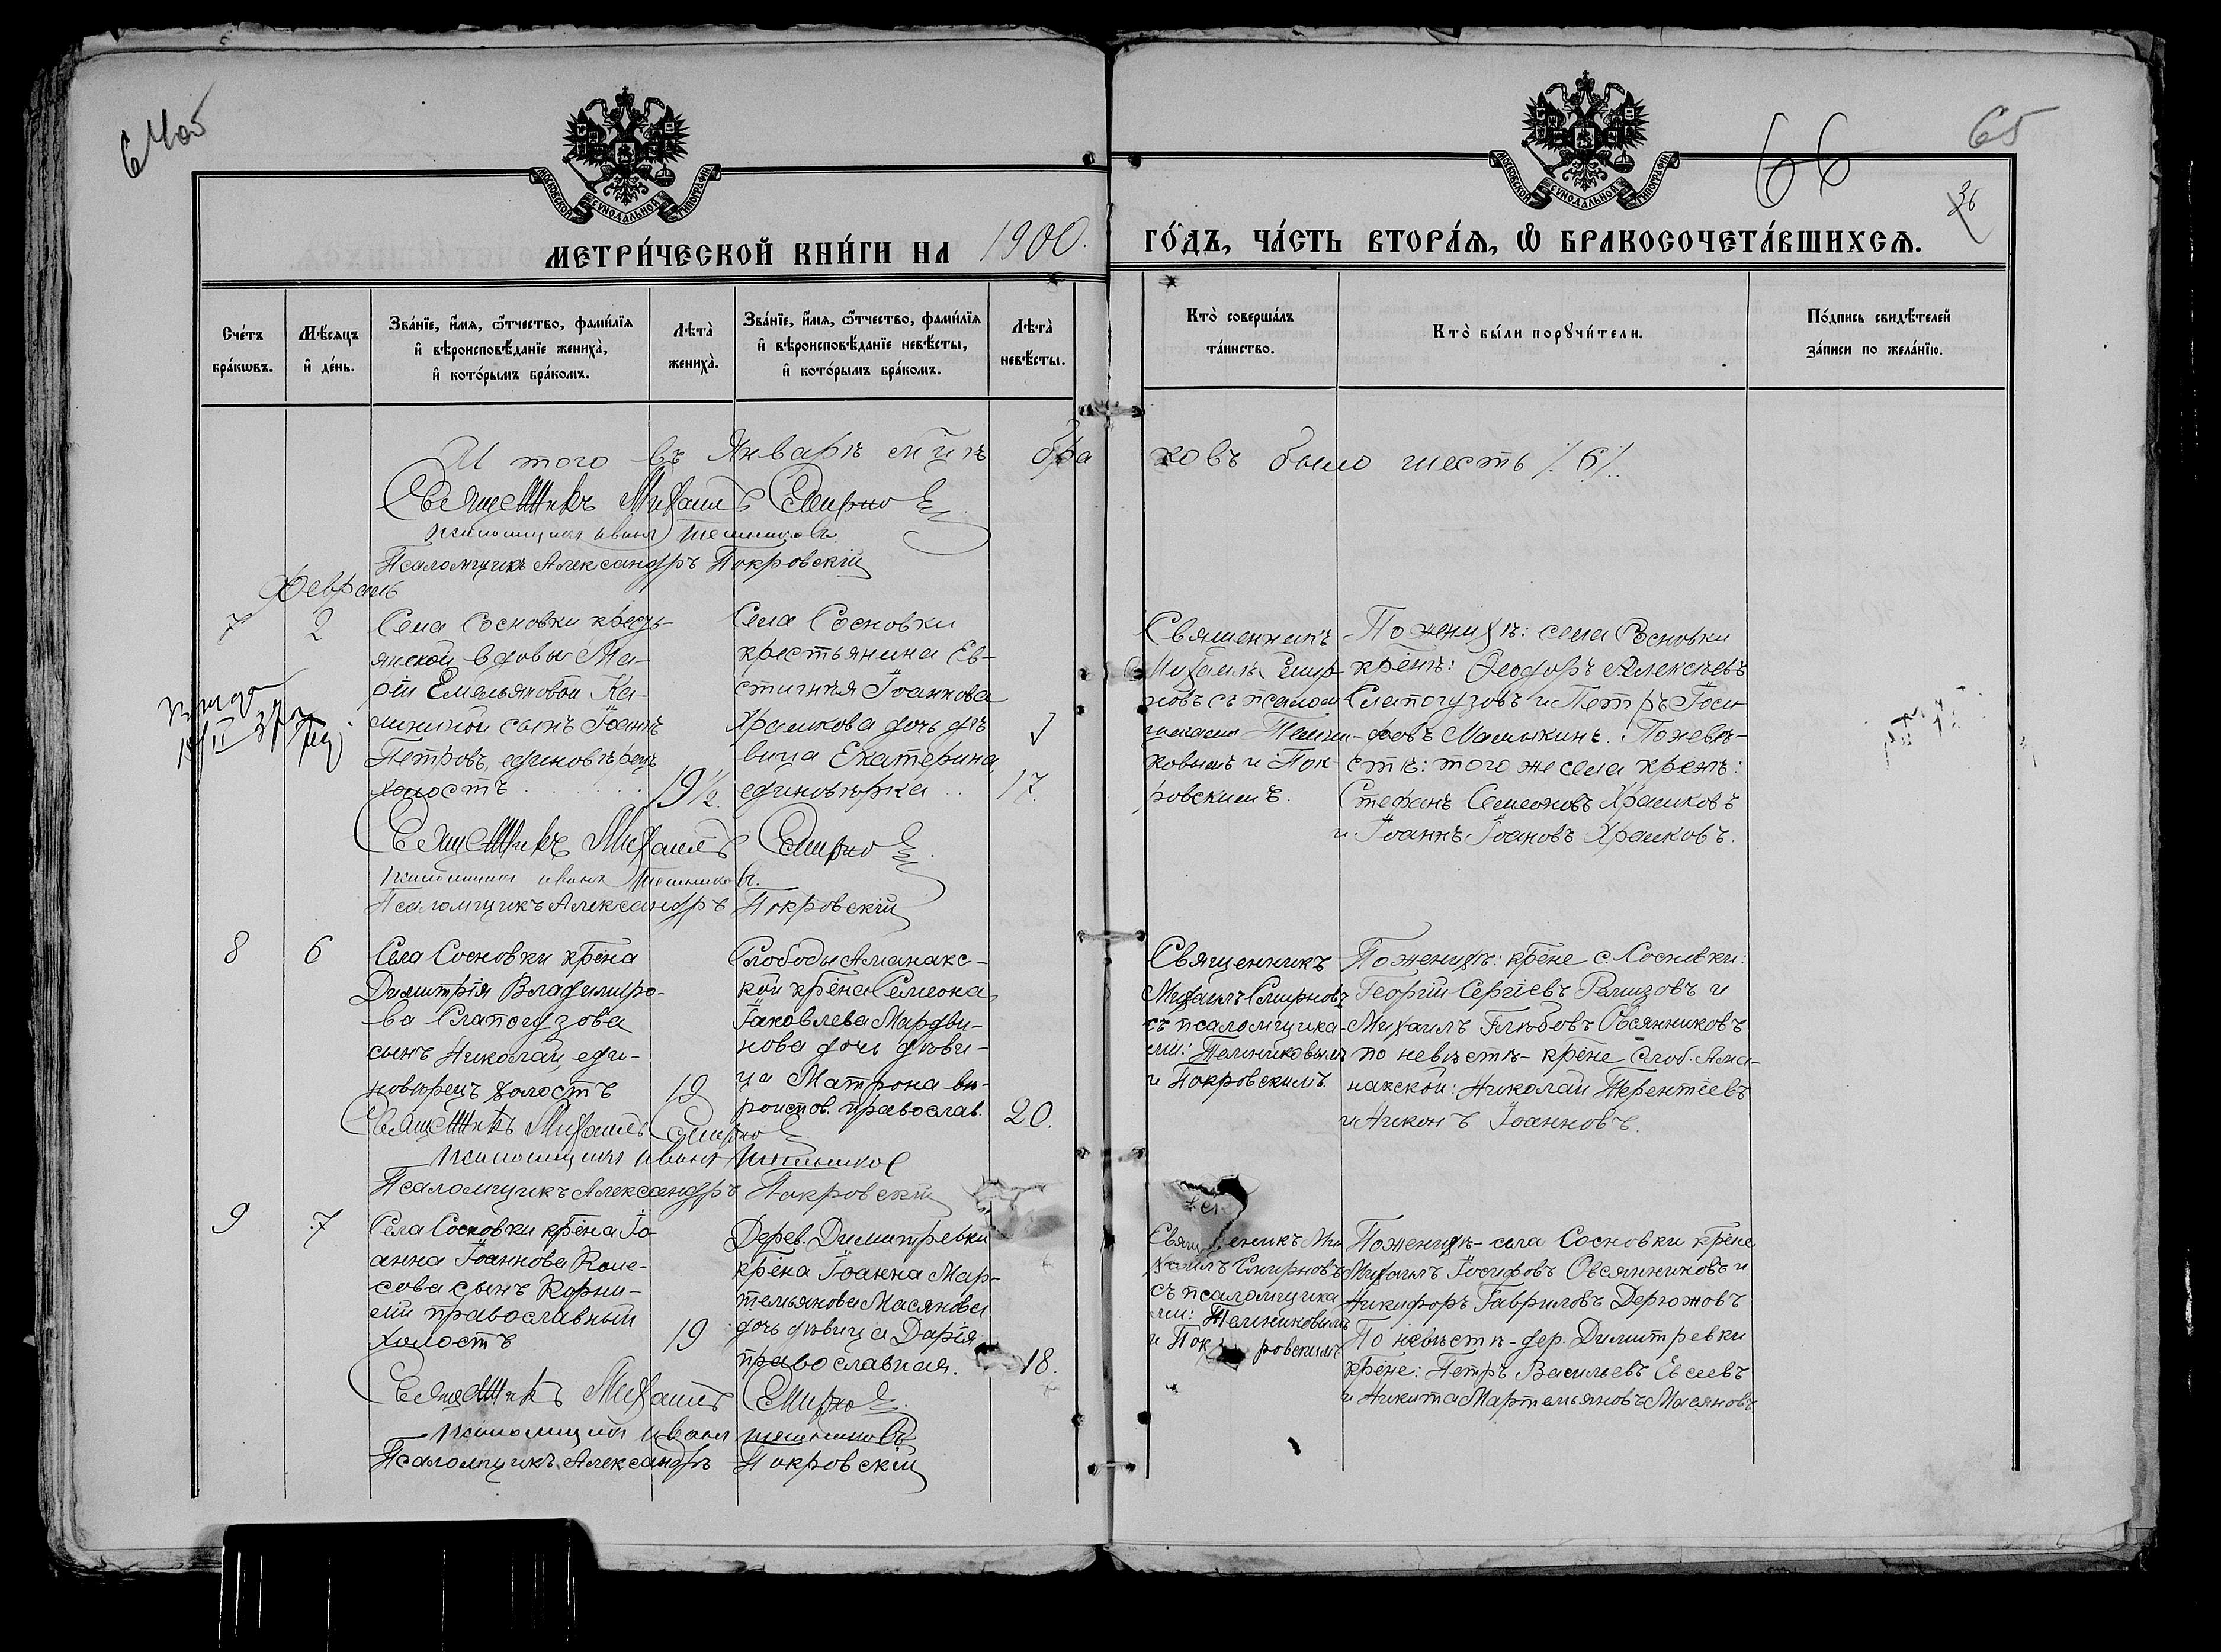 64об
65
66
36
МОСКОВСКОЙ СѴНОДАЛЬНОЙ ТИПОГРАФІИ
МОСКОВСКОЙ СѴНОДАЛЬНОЙ ТИПОГРАФІИ
МЕТРИ́ЧЕСКОЙ КНИ́ГИ НА 1900. ГО́ДЪ, ЧА́СТЬ ВТОРА́Я, Ѡ҆ БРАКОСОЧЕТА́ВШИХСѦ.
Сче́тъ
бра́кѡвъ.
Мѣ́сяцъ
и҆ де́нь.
Зва́нїе, и҆́мѧ, ѻ҆́тчество, фами́лїѧ
и҆ вѣроисповѣ́данїе жениха̀,
и҆ кото́рымъ бра́комъ.
Лѣта̀
жениха̀.
Зва́нїе, и҆́мѧ, ѻ҆́тчество, фами́лїѧ
и҆ вѣроисповѣ́данїе невѣ́сты,
и҆ кото́рымъ бра́комъ.
Лѣта̀
невѣ́сты.
Кто̀ соверша́лъ
та́инство.
Кто̀ бы́ли порꙋчи́тели.
По́дпись свидѣ́телей
за́писи по жела́нїю.
И того въ Январѣ м-цѣ браковъ было шесть /6/.
Священникъ Михаилъ Смирновъ
Псаломщикъ Иванъ
Псаломщикъ Александръ Покровскій
Февраль
7
2
Села Сосновки кресть-
янской вдовы Ма-
ріи Емельяновой Ка-
лининой сынъ Іоаннъ
Петровъ, единовѣрецъ
холостъ
19½.
Села Сосновки
крестьянина Ев-
стигнѣя Іоаннова
Храмкова дочь дѣ
вица Екатерина,
единовѣрка
17.
Священникъ
Михаилъ Смир
новъ съ псалом
щиками
ковымъ и Пок
ровскимъ.
По женихѣ: села Сосновки
крѣнъ: Ѳеодоръ Алексѣевъ
Слапогузовъ и Петръ Іоси
фовъ Малыкинъ. По невѣ-
стѣ: того же села крѣнъ:
Стефанъ Семеоновъ Храмковъ
и Іоаннъ Іоановъ Храмковъ.
Священникъ Михаилъ Смирновъ
Псаломщикъ Иванъ
Псаломщикъ Александръ Покровскій
8
6
Села Сосновки крѣна
Димитрія Владиміро-
ва Слапогузова
сынъ Николай, еди-
новѣрецъ холостъ
19
Слободы Аманакс-
кой крѣна Семеона
Іаковлева Мардви-
нова дочь дѣви-
ца Матрона вѣ-
роиспов. православ.
20.
Священникъ
Михаилъ Смирновъ
съ псаломщика-
ми:
и Покровскимъ
По женихѣ: крѣне с. Сосновки:
Георгій Сергіевъ Рамзовъ и
Михаилъ Глѣбовъ Овсянниковъ
по невѣстѣ- крѣне Слоб. Ама-
накской: Николай Терентіевъ
и Никонъ Іоанновъ.
Священникъ Михаилъ Смирновъ
Псаломщикъ Иванъ
Псаломщикъ Александръ Покровскій
9
7
Села Сосновки крѣна Іо-
анна Іоаннова Коле-
сова сынъ Корни-
лій православный
холостъ
19
Дерев. Димитревки
крѣна Іоанна Мар-
темьянова Масянова
дочь дѣвица Дарія
православная.
18.
Священникъ Ми-
хаилъ Смирновъ
съ псаломщика
ми:
и Покровскимъ
По женихѣ- села Сосновки крѣне
Михаилъ Іосифовъ Овсянниковъ и
Никифоръ Гавриловъ Дерюжовъ
По невѣстѣ- дер. Димитревки
крѣне: Петръ Васильевъ Евсеевъ
и Никита Мартемьяновъ Масяновъ
Священникъ Михаилъ Смирновъ
Псаломщикъ Иванъ
Псаломщикъ Александръ Покровскій